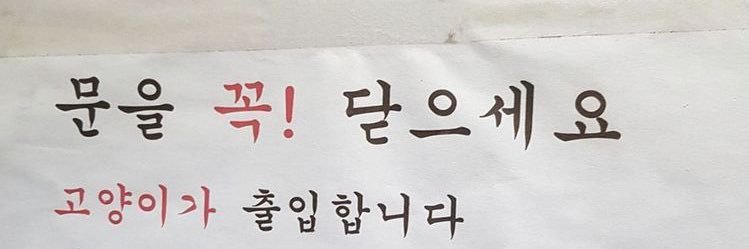 문을 꼭! 닫으세요
고양이가 출입합니다